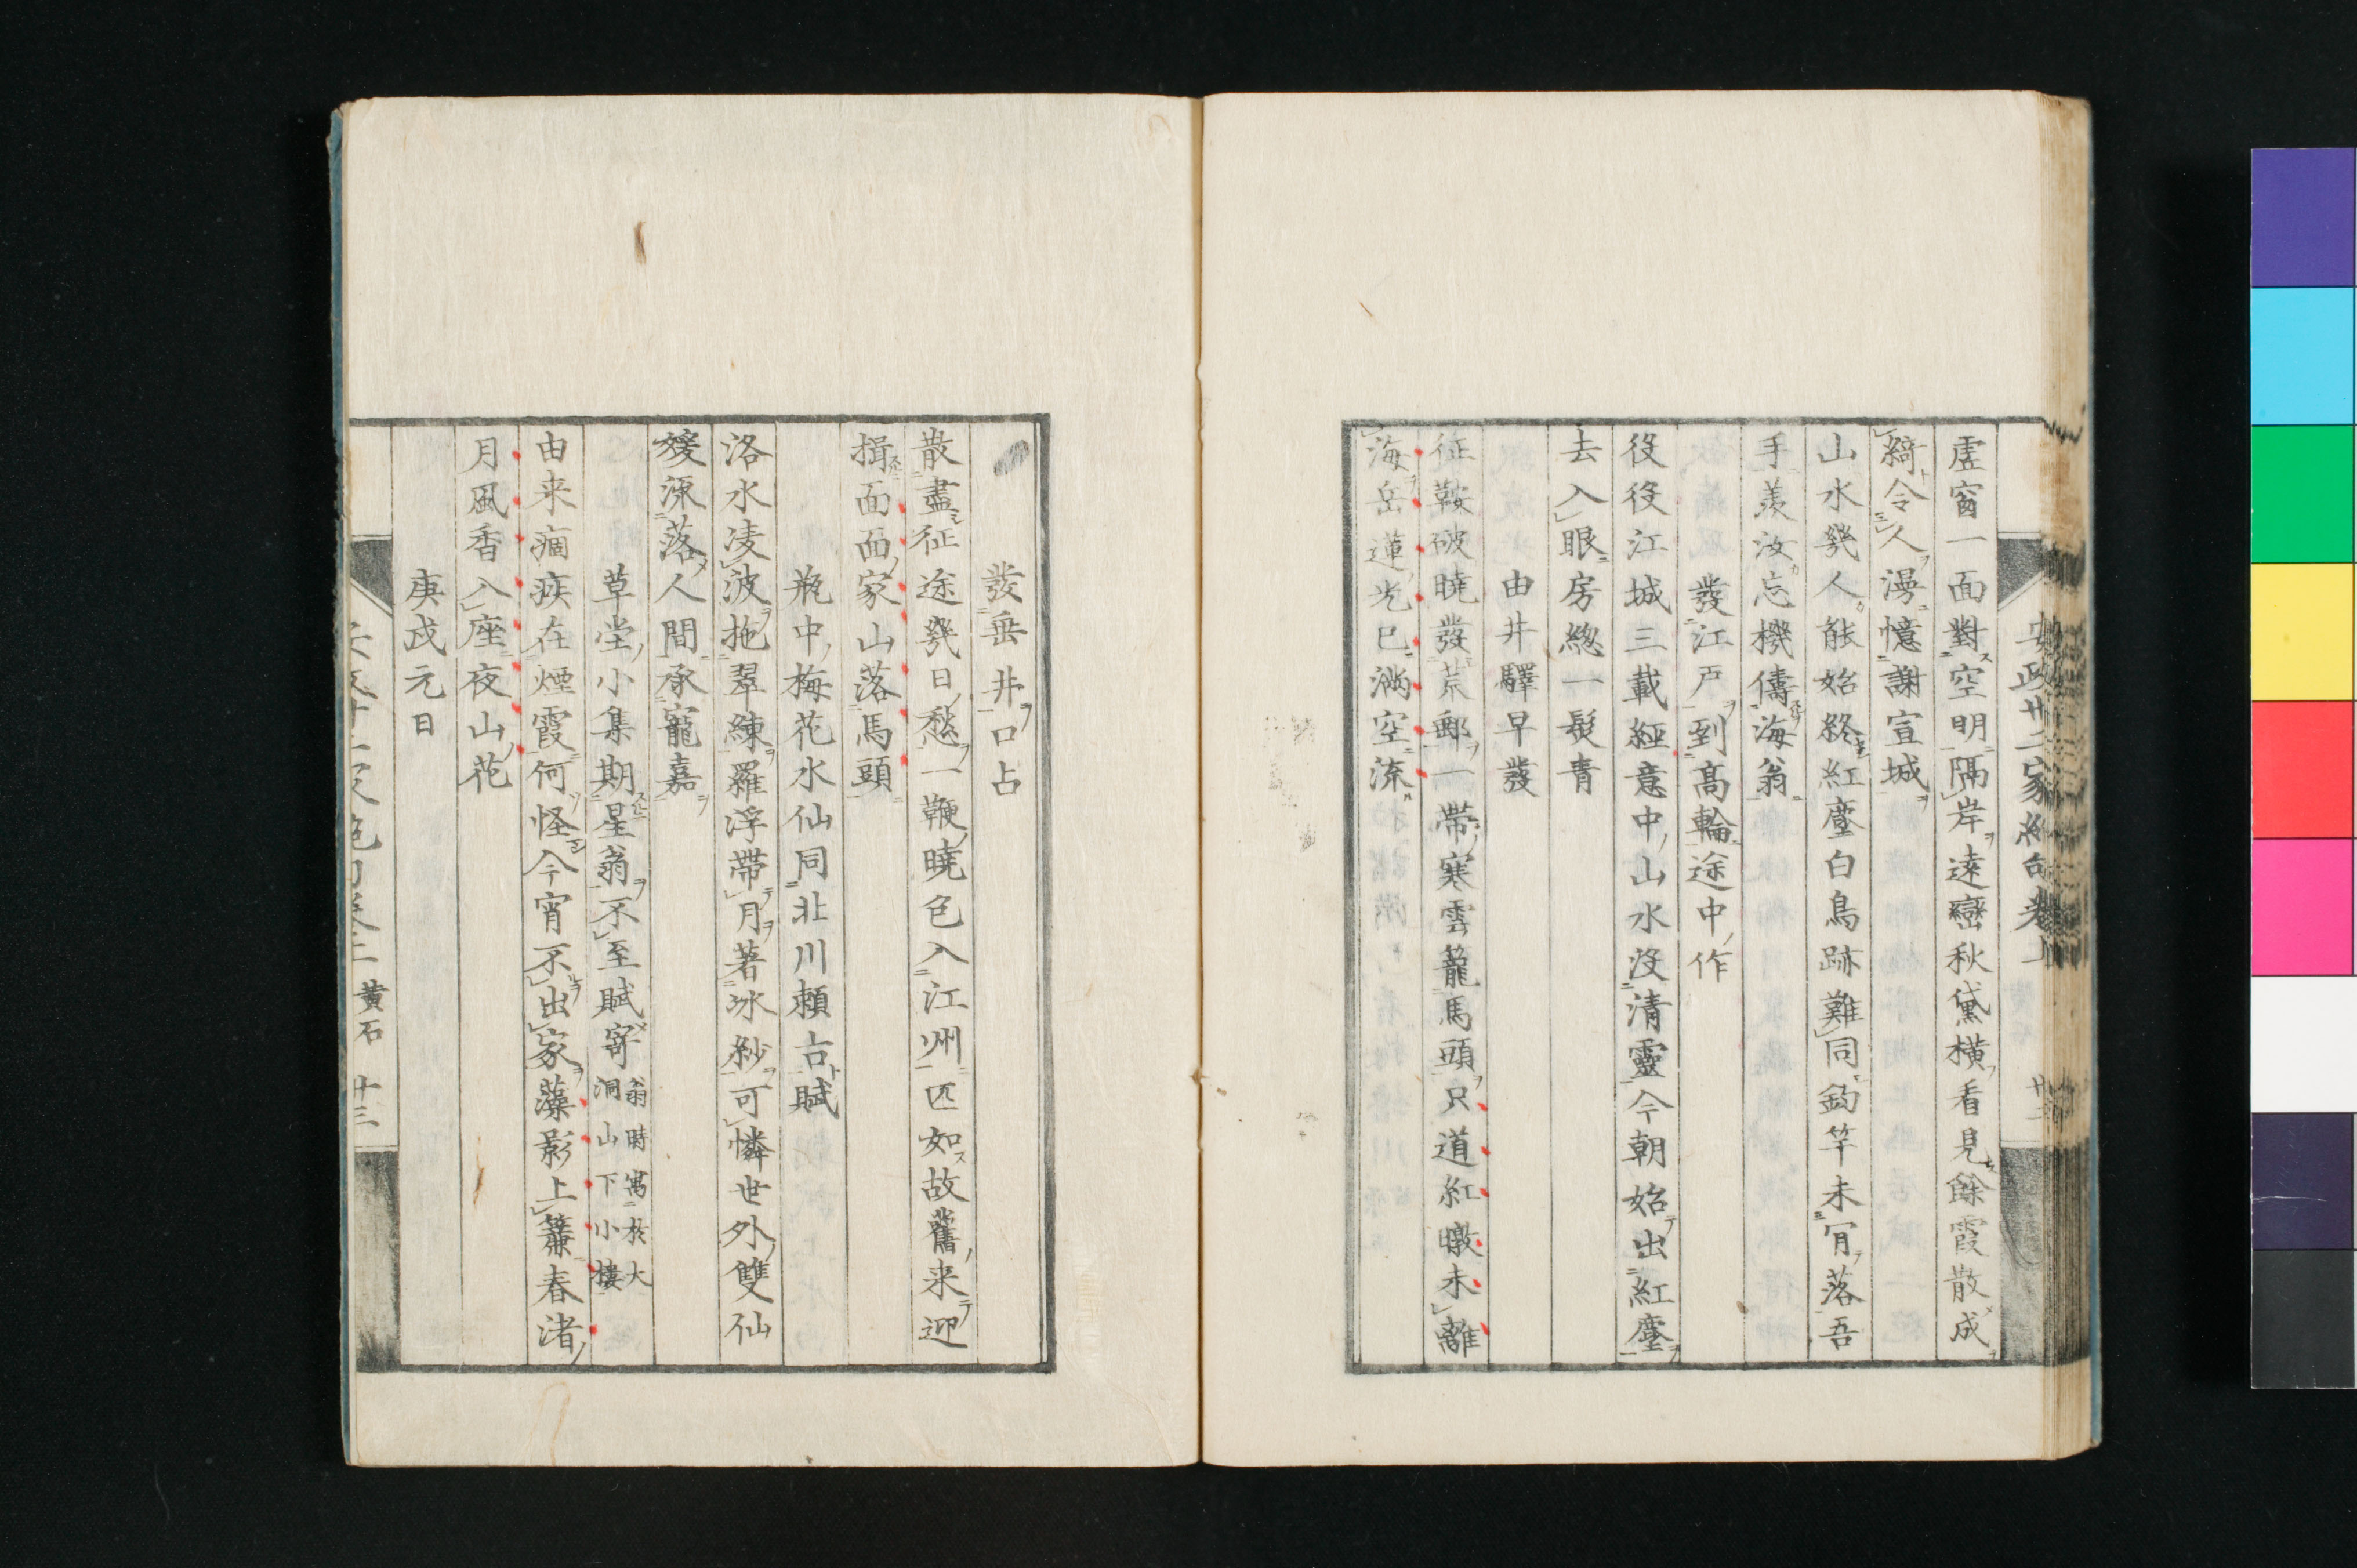 虚窗一面對空明隔岸遠巒秋黛横看見餘霞散成
綺令人漫憶謝宣城
山水幾人能始終紅塵白鳥跡難同釣竿未肎落吾
手羨汝忘機儔海翁
發江戸到髙輪途中作
役役江城三載經意中山水没清靈今朝始出紅塵
去入眼房總一髮青
由井驛早發
征鞍破曉發荒郵一帶寒雲籠馬頭只道紅暾未離
海岳蓮光已滿空流
安政廿二家絶句卷上
發垂井口占
散盡征途幾日愁一鞭曉色入江州匹如故舊来迎
揖面面家山落馬頭
瓶中梅花水仙同北川頼古賦
洛水凌波拖翠練羅浮帶月著冰紗可憐世外雙仙
媛淚落人間承寵嘉
草堂小集期星翁不至賦寄
翁時寓於大
洞山下小樓
由来痼疾在煙霞何怪今宵不出家藻影上簾春渚
月風香入座夜山花
庚戌元日
黄石 十三